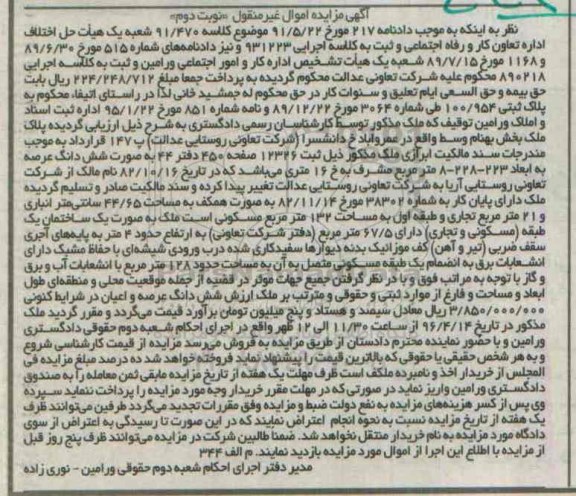 آگهی مزایده اموال غیرمنقول «نوبت دوم»
نظر به اینکه به موجب دادنامه ۲۱۷ مورخ ۹۱/۵/۲۲ موضوع کلاسه ۹۱/۴۷۰ شعبه یک هیأت حل اختلاف
اداره تعاون کار و رفاه اجتماعی و ثبت به کلاسه اجرایی ۹۳۱۲۲۳ و نیز دادنامه‌های شماره ۵۱۵ مورخ ۸۹/۶/۳۰
و ۱۱۶۸ مورخ ۸۹/۷/۱۵ شعبه یک هیأت تشخیص اداره کار و امور اجتماعی ورامین و ثبت به کلاسه اجرایی
۸۹۰۲۱۸ محکوم علیه شرکت تعاونی عدالت محکوم گردیده به پرداخت جمعا مبلغ ۲۲۴/۲۴۸/۷۱۲ ریال بابت
حق بیمه و حق السعی ایام تعلیق و سنوات کار در حق محکوم له جمشید خانی لذا در راستای اتیفاء محکوم به
پلاک ثبتی ۱۰۰/۹۵۴ طی شماره ۳۰۶۴ مورخ ۸۹/۱۲/۲۲ و نامه شماره ۸۵۱ مورخ ۹۵/۱/۲۲ اداره ثبت اسناد
و املاک ورامین توقیف که ملک مذکور توسط کارشناسان رسمی دادگستری به شرح ذیل ارزیابی گردیده پلاک
ملک بخش بهنام وسط واقع در عمروآباد خ دانشسرا (شرکت تعاونی روستایی عدالت) پ ۱۴۷ قرارداد به موجب
مندرجات سند مالکیت ابرازی ملک مذکور ذیل ثبت ۱۲۳۲۶ صفحه ۴۵۰ دفتر ۴۴ به صورت شش دانگ عرصه
به ابعاد ۲۲۳-۲۲۸-۸ متر مربع مشرف به خ ۱۶ متری می‌باشد که در تاریخ ۸۲/۱۰/۱۶ نام مالک از شرکت
تعاونی روستایی آریا به شرکت تعاونی روستایی عدالت تغییر پیدا کرده و سند مالکیت صادر و تسلیم گردیده
ملک دارای پایان کار به شماره ۳۸۳۰۲ مورخ ۸۲/۱۱/۱۴ به صورت همکف به مساحت ۴۴/۶۵ سانتی‌متر انباری
و ۲۱ متر مربع تجاری و طبقه اول به مساحت ۱۳۲ متر مربع مسکونی است ملک به صورت یک ساختمان یک
طبقه (مسکونی و تجاری) دارای ۶۷/۵ متر مربع (دفتر شرکت تعاونی) به ارتفاع حدود ۴ متر به پایه‌های آجری
سقف ضربی (تیر و آهن) کف موزائیک بدنه دیوارها سفیدکاری شده درب ورودی شیشه‌ای با حفاظ مشبک دارای
انشعابات برق به انضمام یک طبقه مسکونی متصل به آن به مساحت حدود ۱۲۸ متر مربع با انشعابات آب و برق
و گاز با توجه به مراتب فوق و با در نظر گرفتن جمیع جهات موثر در قضیه از جمله موقعیت محلی و منطقه‌ای طول
ابعاد و مساحت و فارغ از موارد ثبتی و حقوقی و مترتب بر ملک ارزش شش دانگ عرصه و اعیان در شرایط کنونی
۳/۸۵۰/۰۰۰/۰۰۰ ریال معادل سیصد و هشتاد و پنج میلیون تومان برآورد قیمت می‌گردد و مقرر گردید ملک
مذکور در تاریخ ۹۶/۴/۱۴ از ساعت ۱۱/۳۰ الی ۱۲ ظهر واقع در اجرای احکام شعبه دوم حقوقی دادگستری
ورامین و با حضور نماینده محترم دادستان از طریق مزایده به فروش می‌رسد مزایده از قیمت کارشناسی شروع
و به هر شخص حقیقی یا حقوقی که بالاترین قیمت را پیشنهاد نماید فروخته خواهد شد ده درصد مبلغ مزایده فی
المجلس از خریدار اخذ و نامبرده ملکف است ظرف مهلت یک هفته از تاریخ مزایده مابقی ثمن معامله را به صندوق
دادگستری ورامین واریز نماید در صورتی که در مهلت مقرر خریدار وجه مورد مزایده را پرداخت ننماید سپرده
وی پس از کسر هزینه‌های مزایده به نفع دولت ضبط و مزایده وفق مقررات تجدید می‌گردد طرفین می‌توانند ظرف
یک هفته از تاریخ مزایده نسبت به نحوه انجام اعتراض نمایند که در این صورت تا رسیدگی به اعتراض از سوی
دادگاه مورد مزایده به نام خریدار منتقل نخواهد شد. ضمنا طالبین شرکت در مزایده می‌توانند ظرف پنج روز قبل
از مزایده با اطلاع این اجرا از اموال مورد مزایده بازدید نمایند. م الف ۳۴۴
مدیر دفتر اجرای احکام شعبه دوم حقوقی ورامین - نوری زاده